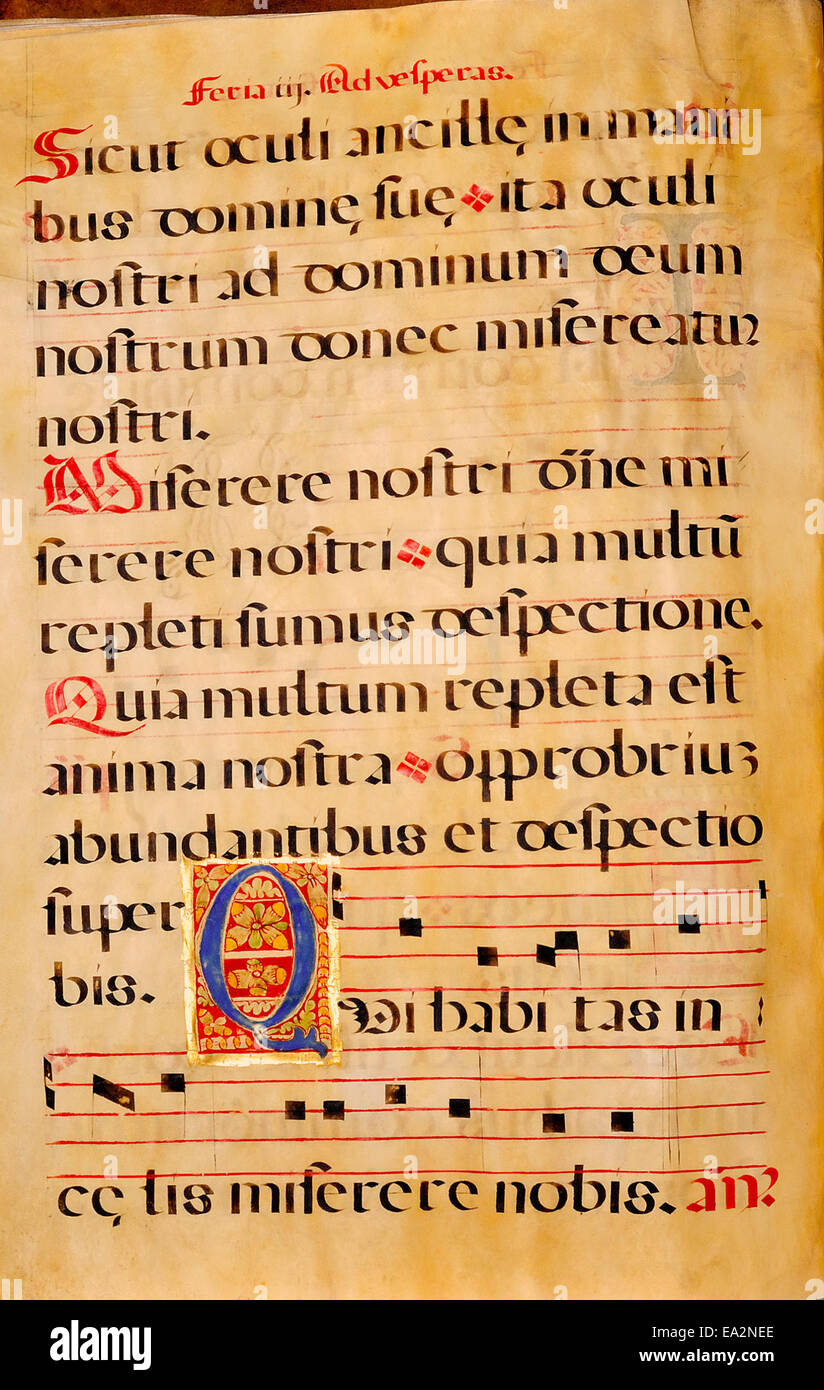 Feria iij. Ad veſperas.
Sicut oculi ancillę in mani
bus dominę ſuę ita oculi
noſtri ad dominum deum
noſtrum donec miſereatur
noſtri.
Miſerere noſtri dn̄e mi
ſerere noſtri quia multū
repleti ſumus deſpectione.
Quia multum repleta eſt
anima noſtra opprobrium
abundantibus et deſpectio
ſuper
bis.
QVi habi tas in
cę lis miſerere nobis. an̄?
alamy
Image ID: EA2NEE
www.alamy.com